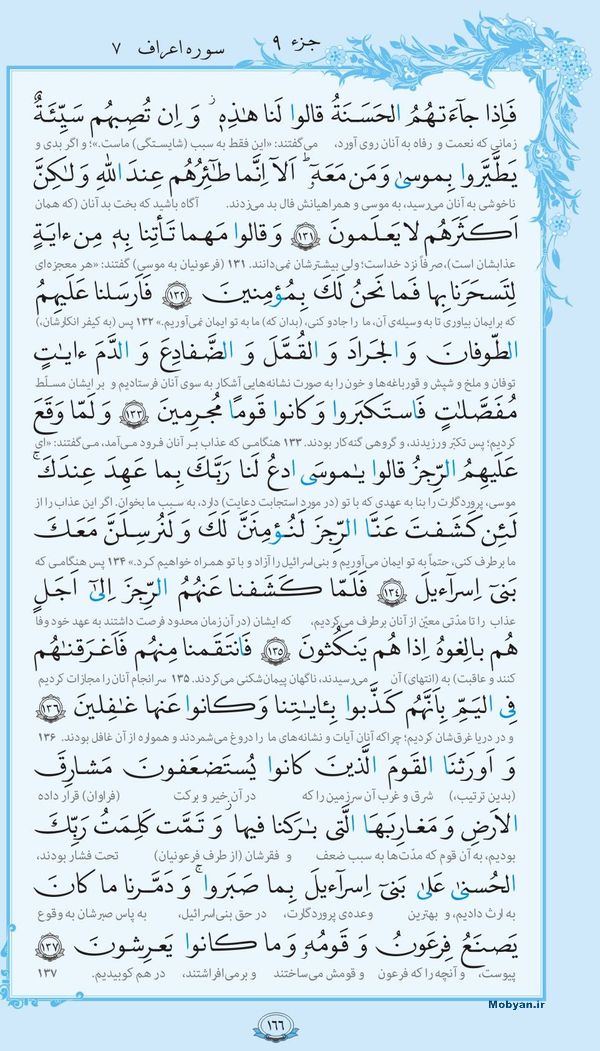 جزء ۹ سوره اعراف ۷
فَاِذا جآءَتهُمُ الحَسَنَةُ قالوا لَنا هٰذِهٖ ۖ وَ اِن تُصِبهُم سَيِّئَةٌ
زمانی که نعمت و رفاه به آنان روی آورد، می‌گفتند: «این فقط به سبب (شایستگی) ماست.»؛ و اگر بدی و
يَطَّيَّروا بِموسىٰ وَ مَن مَعَهٗ ۗ اَلآ اِنَّما طٰٓئِرُهُم عِندَ اللّٰهِ وَ لٰكِنَّ
ناخوشی به آنان می‌رسید، به موسی و همراهیانش فال بد می‌زدند. آگاه باشید که بخت بد آنان (که همان
اَكثَرَهُم لا يَعلَمونَ ﴿۱۳۱﴾ وَ قالوا مَهما تَأتِنا بِهٖ مِن ءايَةٍ
عذابشان است)، صرفاً نزد خداست؛ ولی بیشترشان نمی‌دانند. ۱۳۱ (فرعونیان به موسی) گفتند: «هر معجزه‌ای
لِتَسحَرَنا بِها فَما نَحنُ لَكَ بِمُؤمِنينَ ﴿۱۳۲﴾ فَاَرسَلنا عَلَيهِمُ
که برایمان بیاوری تا به وسیله‌ی آن، ما را جادو کنی، (بدان که) ما به تو ایمان نمی‌آوریم.» ۱۳۲ پس (به کیفر انکارشان،)
الطّوفانَ وَ الجَرادَ وَ القُمَّلَ وَ الضَّفادِعَ وَ الدَّمَ ءاياتٍ
توفان و ملخ و شپش و قورباغه‌ها و خون را به صورت نشانه‌هایی آشکار به سوی آنان فرستادیم و بر ایشان مسلّط
مُفَصَّلاتٍ فَاستَكبَروا وَ كانوا قَومًا مُجرِمينَ ﴿۱۳۳﴾ وَ لَمّا وَقَعَ
کردیم؛ پس تکبّر ورزیدند، و گروهی گنه‌کار بودند. ۱۳۳ هنگامی که عذاب بر آنان فرود می‌آمد، می‌گفتند: «ای
عَلَيهِمُ الرِّجزُ قالوا يٰموسَى ادعُ لَنا رَبَّكَ بِما عَهِدَ عِندَكَ ۖ
موسی، پروردگارت را بنا به عهدی که با تو (در مورد استجابت دعایت) دارد، به سبب ما بخوان. اگر این عذاب را از
لَئِن كَشَفتَ عَنَّا الرِّجزَ لَنُؤمِنَنَّ لَكَ وَ لَنُرسِلَنَّ مَعَكَ
ما برطرف کنی، حتماً به تو ایمان می‌آوریم و بنی‌اسرائیل را آزاد و با تو همراه خواهیم کرد.» ۱۳۴ پس هنگامی که
بَنىٓ اِسرآءيلَ ﴿۱۳۴﴾ فَلَمّا كَشَفنا عَنهُمُ الرِّجزَ اِلىٰٓ اَجَلٍ
عذاب را تا مدّتی معیّن از آنان برطرف می‌کردیم، که ایشان (در آن زمان محدود فرصت داشتند به عهد خود وفا
هُم بالِغوهُ اِذا هُم يَنكُثونَ ﴿۱۳۵﴾ فَانتَقَمنا مِنهُم فَاَغرَقنٰهُم
کنند و عاقبت) به (انتهای) آن می‌رسیدند، ناگهان پیمان‌شکنی می‌کردند. ۱۳۵ سرانجام آنان را مجازات کردیم
فِى اليَمِّ بِاَنَّهُم كَذَّبوا بِـٔايٰتِنا وَ كانوا عَنها غٰفِلينَ ﴿۱۳۶﴾
و در دریا غرق‌شان کردیم؛ چراکه آنان آیات و نشانه‌های ما را دروغ می‌شمردند و همواره از آن غافل بودند. ۱۳۶
وَ اَورَثنَا القَومَ الَّذينَ كانوا يُستَضعَفونَ مَشارِقَ
(بدین ترتیب،) شرق و غرب آن سرزمین را که در آن خیر و برکت (فراوان) قرار داده
الاَرضِ وَ مَغارِبَهَا الَّتى بٰرَكنا فيها ۖ وَ تَمَّت كَلِمَتُ رَبِّكَ
بودیم، به آن قوم که مدّت‌ها به سبب ضعف و فقرشان (از طرف فرعونیان) تحت فشار بودند،
الحُسنىٰ عَلىٰ بَنىٓ اِسرآءيلَ بِما صَبَروا ۖ وَ دَمَّرنا ما كانَ
به ارث دادیم، و بهترین وعده‌ی پروردگارت، در حق بنی‌اسرائیل، به پاس صبرشان به وقوع
يَصنَعُ فِرعَونُ وَ قَومُهٗ وَ ما كانوا يَعرِشونَ ﴿۱۳۷﴾
پیوست، و آنچه را که فرعون و قومش می‌ساختند و برمی‌افراشتند، در هم کوبیدیم. ۱۳۷
Mobyan.ir
۱۶۶